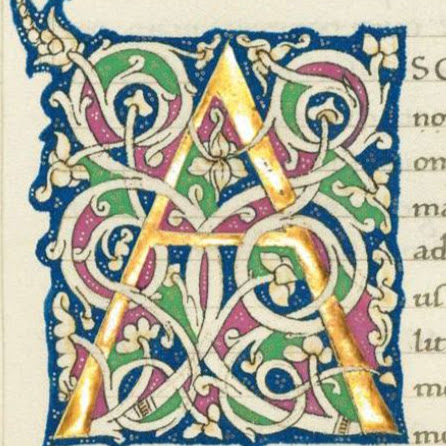 A
SC
no
on
ma
ad
ul
lit
me
me